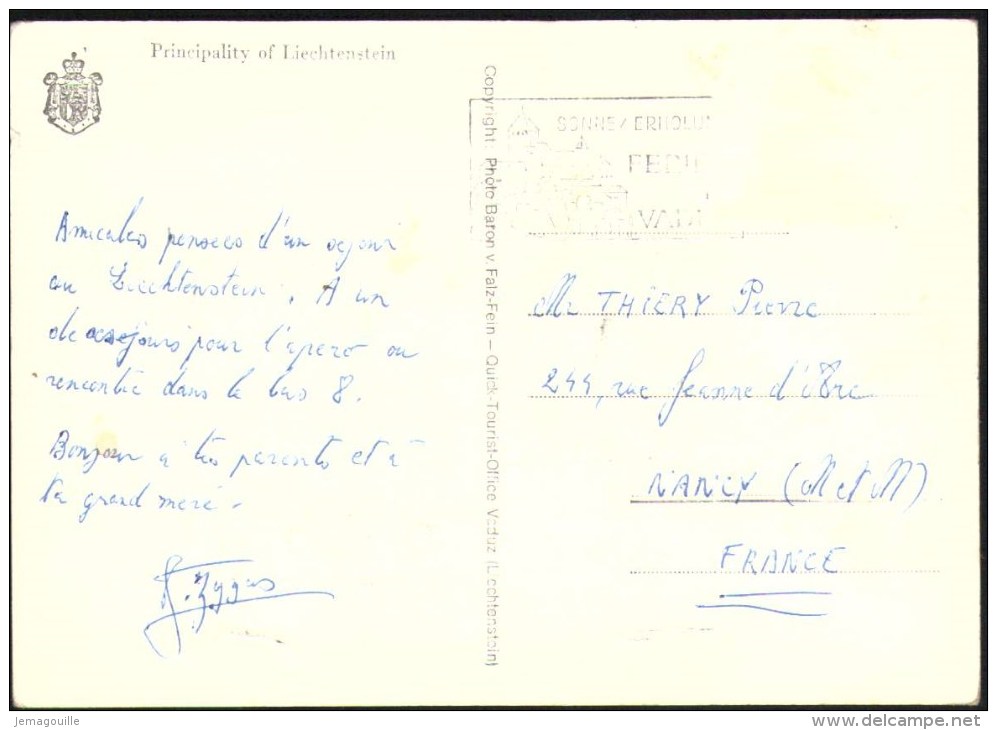 Principality of Liechtenstein
Amicales pensées d'un séjour
au Liechtenstein. A un
de ces jours pour l'apéro ou
rencontre dans le bus 8.
Bonjour à tes parents et à
ta grand mère.
Copyright: Photo Baron v. Falz-Fein – Quick-Tourist-Office Vaduz (Liechtenstein)
SONNE/ERHOLU
FERIE
VADU
Mr THIERY Pierre
244, rue Jeanne d'Arc
NANCY (M et M)
FRANCE
Jemagouille
www.delcampe.net